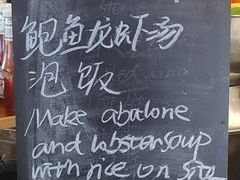 鲍鱼龙虾汤
泡饭
Make abalone
and lobster soup
with rice on site